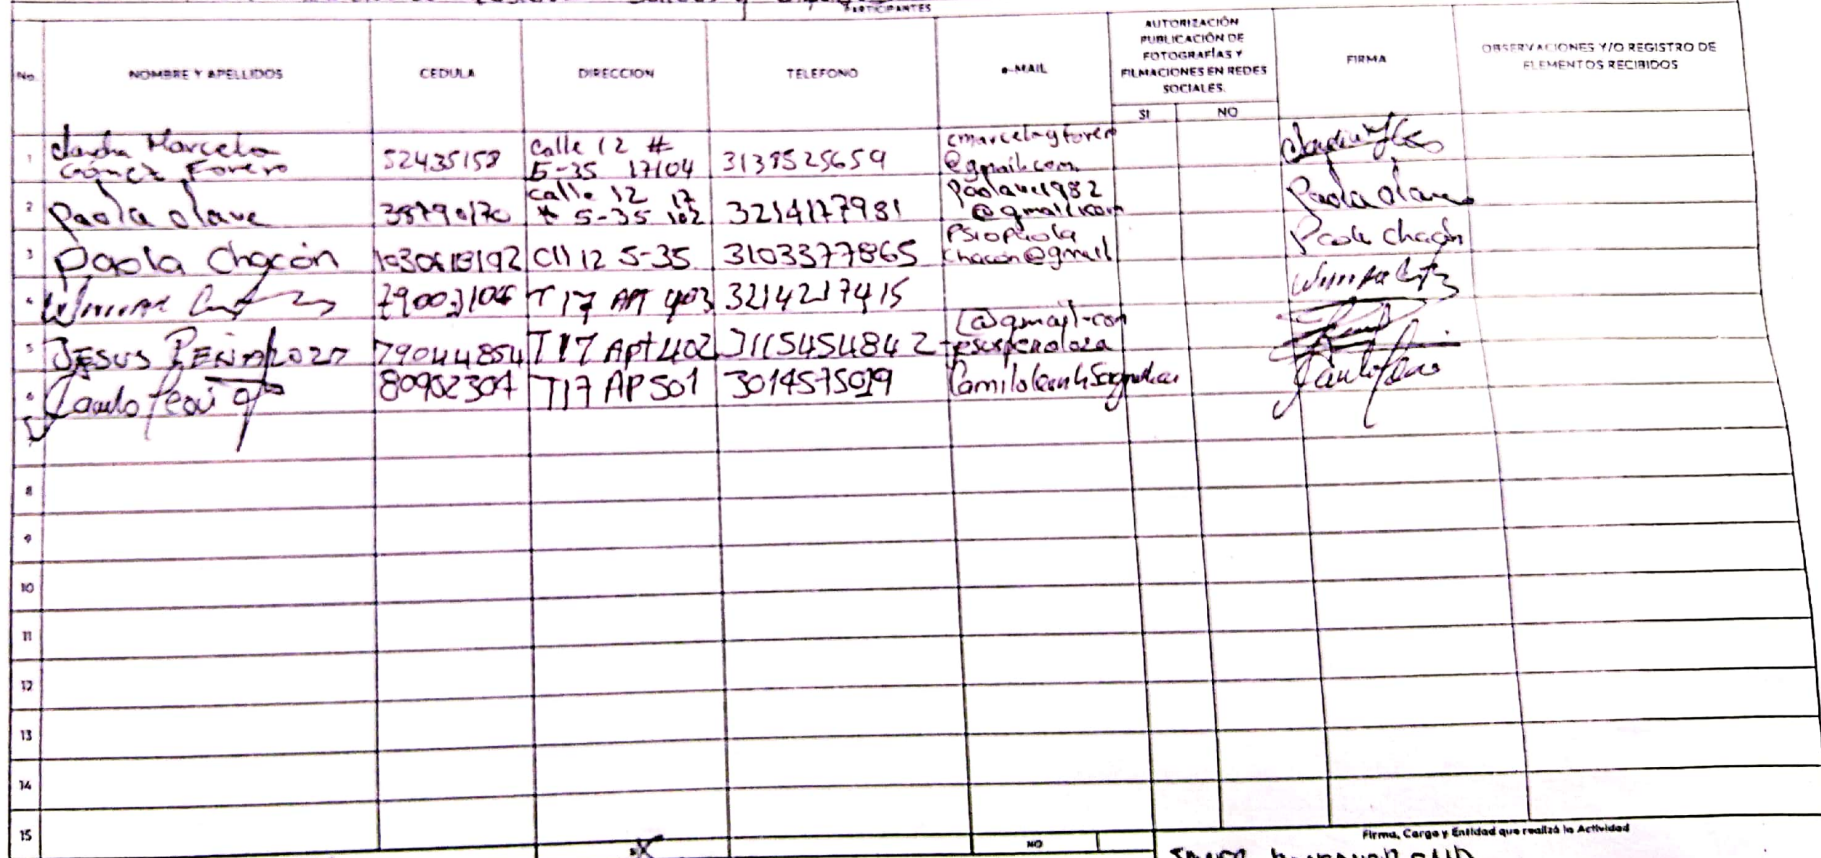 PARTICIPANTES
No.
NOMBRE Y APELLIDOS
CEDULA
DIRECCION
TELEFONO
e-MAIL
AUTORIZACIÓN
PUBLICACIÓN DE
FOTOGRAFÍAS Y
FILMACIONES EN REDES
SOCIALES.
SI
NO
FIRMA
OBSERVACIONES Y/O REGISTRO DE
ELEMENTOS RECIBIDOS
1
Marcela
Gómez Forero
52435158
Calle 12 #
5-35 17104
3138525659
cmarcelagforero
@gmail.com
2
Paola Olave
38790170
calle 12 17
# 5-35 102
3214177981
Paolave1982
@gmail.com
Paola Olave
3
Paola Chacón
1030618192
Cll 12 5-35
3103377865
Psiopaola
chacon@gmail
Paola Chacón
4
T17 APT 403
3214217415
5
JESUS PEÑALOZA
79044854
T17 Apt 402
3115454842
@gmail.com
6
80902304
T17 AP 501
7
8
9
10
11
12
13
14
15
X
NO
Firma, Cargo y Entidad que realizó la Actividad